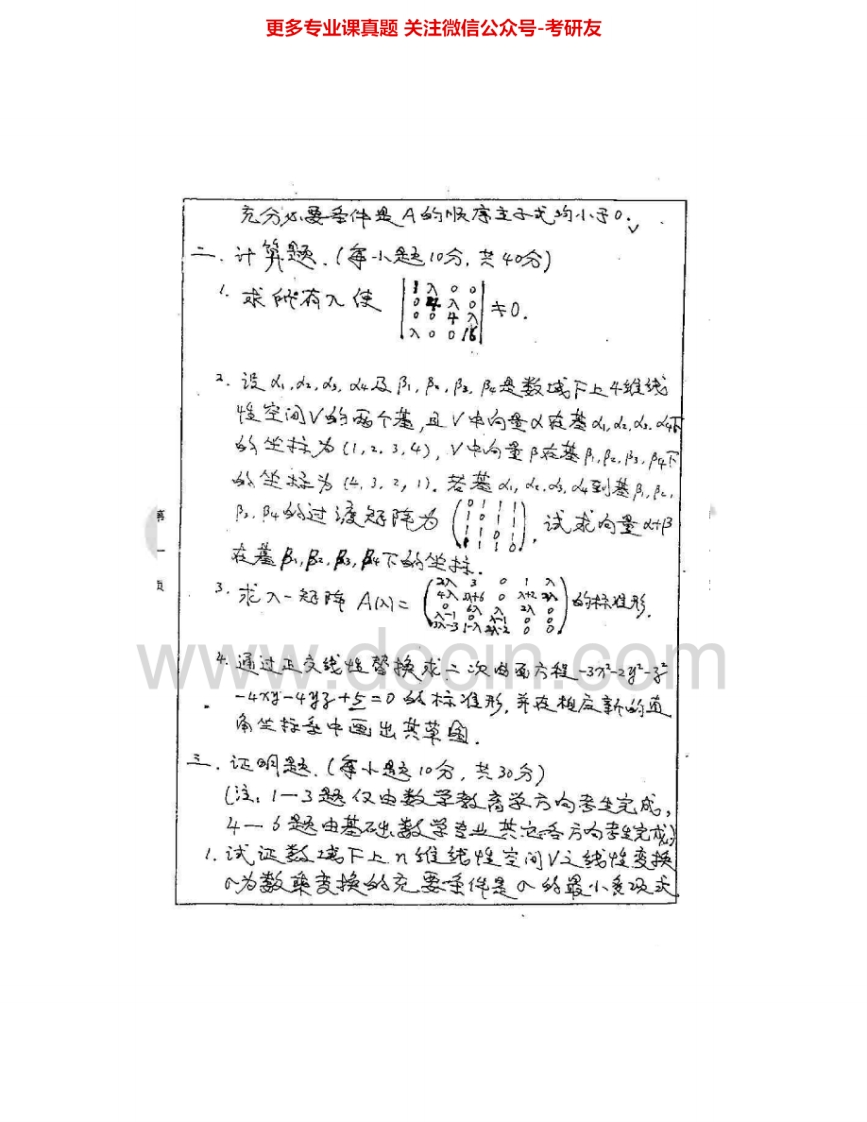 更多专业课真题 关注微信公众号-考研友
充分必要条件是A的顺序主子式均小于0。
二、计算题.(每小题10分,共40分)
1. 求所有λ使 |1 λ 0 0; 0 4 λ 0; 0 0 4 λ; λ 0 0 16| ≠0.
2. 设α1,α2,α3,α4及β1,β2,β3,β4是数域F上4维线
性空间V的两个基,且V中向量α在基α1,α2,α3,α4下
的坐标为(1,2,3,4),V中向量β在基β1,β2,β3,β4下
的坐标为(4,3,2,1).若基α1,α2,α3,α4到基β1,β2,
β3,β4的过渡矩阵为 (0 1 1 1; 1 0 1 1; 1 1 0 1; 1 1 1 0), 试求向量α+β
在基β1,β2,β3,β4下的坐标.
3. 求λ-矩阵 A(λ)= (2λ 3 0 1 λ; 4λ 3λ+6 0 λ+2 2λ; 0 6λ λ 2λ 0; λ-1 0 λ-1 0 0; 3λ-3 1-λ 2λ-2 0 0) 的标准形.
4. 通过正交线性替换求二次曲面方程 -3x²-2y²-z²
-4xy-4yz+5=0 的标准形,并在相应新的直
角坐标系中画出其草图.
三、证明题.(每小题10分,共30分)
(注:1—3题仅由数学教育学方向考生完成,
4—6题由基础数学专业其它各方向考生完成)
1. 试证数域F上n维线性空间V之线性变换
σ为数乘变换的充要条件是σ的最小多项式
第
一
页
www.docin.com